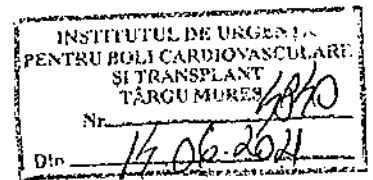 INSTITUTUL DE URGENȚĂ
PENTRU BOLI CARDIOVASCULARE
ȘI TRANSPLANT
TÂRGU MUREȘ
Nr.
Din 14.06.2021